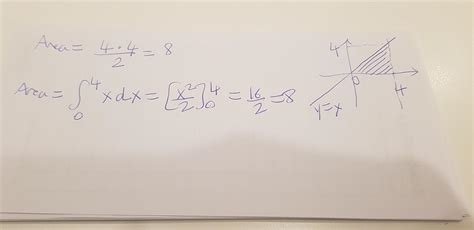 Area = 4·4/2 = 8
Area = ∫₀⁴ x dx = [x²/2]₀⁴ = 16/2 = 8
4
0
4
y=x